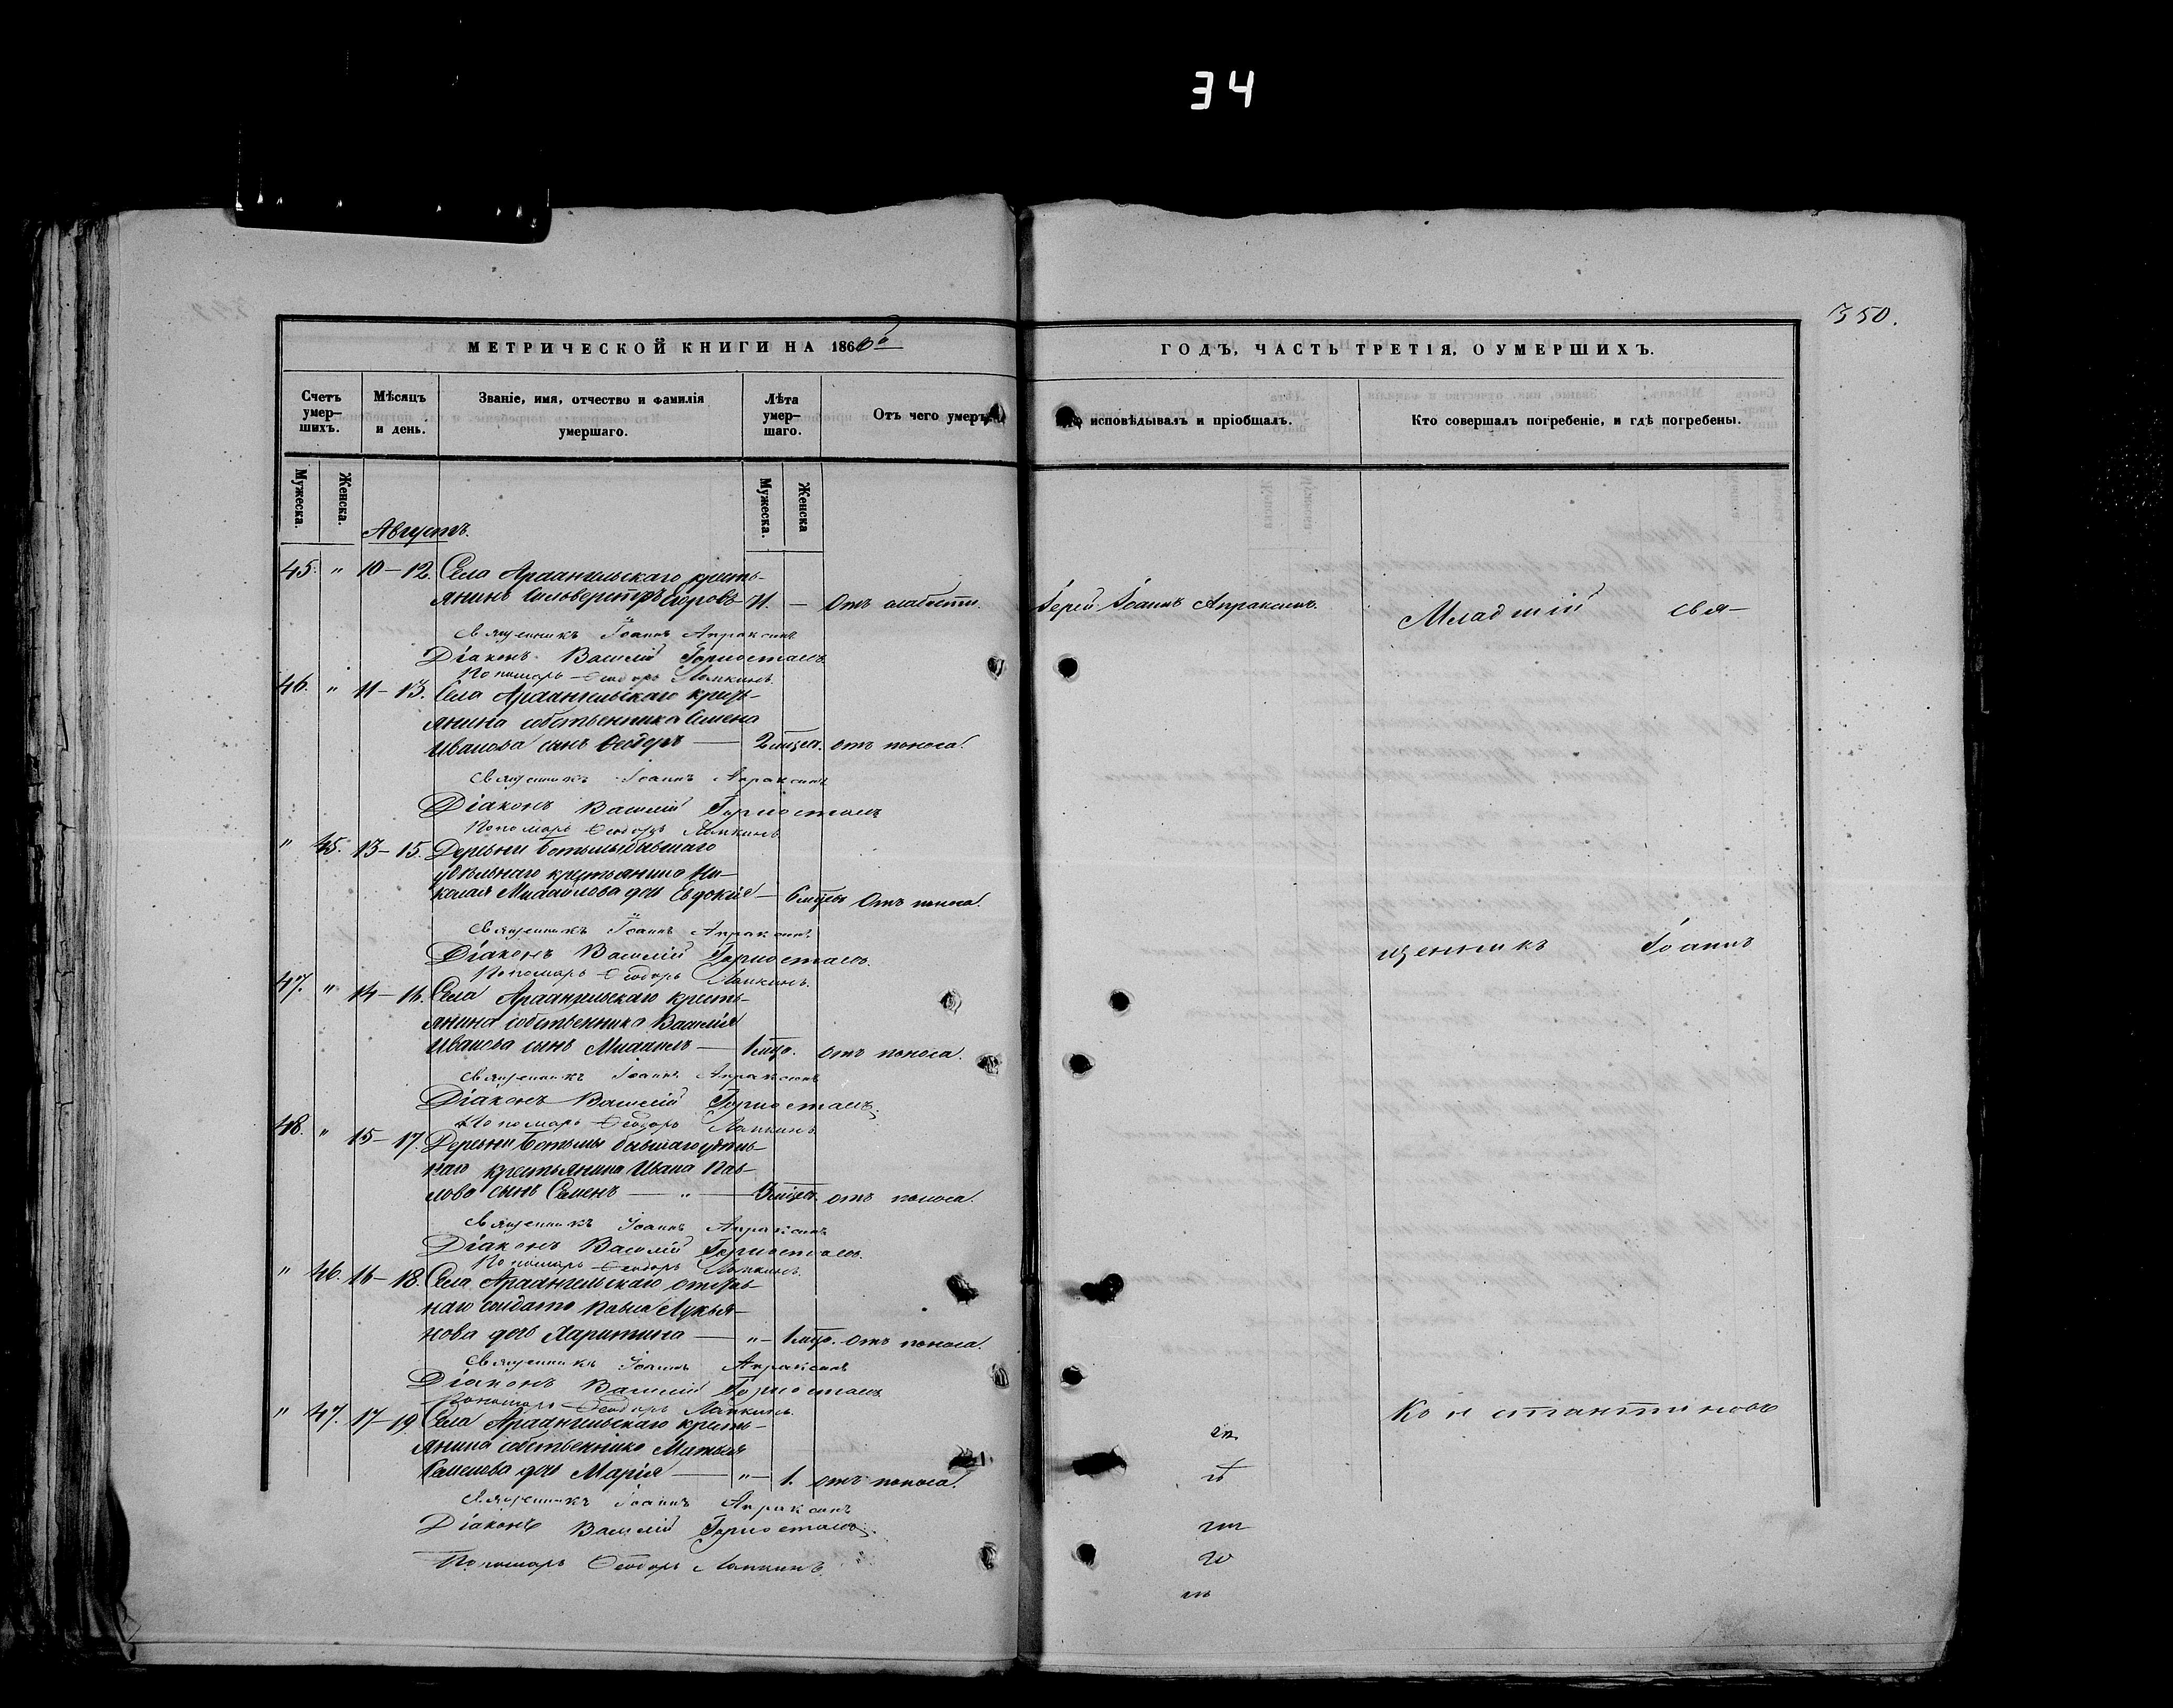 34
350.
МЕТРИЧЕСКОЙ КНИГИ НА 1866й
ГОДЪ, ЧАСТЬ ТРЕТІЯ, О УМЕРШИХЪ.
Счетъ умер-шихъ.
Мѣсяцъ и день.
Званіе, имя, отчество и фамилія умершаго.
Лѣта умер-шаго.
Отъ чего умеръ
исповѣдывалъ и пріобщалъ.
Кто совершалъ погребеніе, и гдѣ погребены.
Мужеска.
Женска.
Мужеска.
Женска
Августъ.
45. " 10-12. Села Архангельскаго кресть-
янинъ Сильверстръ Егоровъ 71. — Отъ слабости. Іерей Іоаннъ Апраксинъ. Младшій свя-
Священникъ Іоаннъ Апраксинъ
Діаконъ Василій Горностаевъ
Пономарь Ѳеодоръ Лапкинъ.
46. " 11-13. Села Архангельскаго кресть-
янина собственника Семена
Иванова сынъ Ѳеодоръ — 2 мѣсяц. отъ поноса.
Священникъ Іоаннъ Апраксинъ
Діаконъ Василій Горностаевъ
Пономарь Ѳеодоръ Лапкинъ
" 45. 13-15. Деревни Ботьмы бывшаго
удѣльнаго крестьянина Ни-
колая Михайлова дочь Евдокія — 6 мѣсяц. Отъ поноса.
Священникъ Іоаннъ Апраксинъ
щенникъ Іоаннъ
Діаконъ Василій Горностаевъ.
Пономарь Ѳеодоръ Лапкинъ.
47. " 14-16. Села Архангельскаго кресть-
янина собственника Василія
Иванова сынъ Михаилъ — 1 мѣс. отъ поноса.
Священникъ Іоаннъ Апраксинъ
Діаконъ Василій Горностаевъ.
Пономарь Ѳеодоръ Лапкинъ
48. " 15-17. Деревни Ботьмы бывшаго удѣль-
наго крестьянина Ивана Пав-
лова сынъ Семенъ — " — мѣсяц. отъ поноса.
Священникъ Іоаннъ Апраксинъ
Діаконъ Василій Горностаевъ.
Пономарь Ѳеодоръ Лапкинъ.
" 46. 16-18. Села Архангельскаго
наго солдата Павла Лукья-
нова дочь Харитина — " — 1 мѣс. отъ поноса.
Священникъ Іоаннъ Апраксинъ
Діаконъ Василій Горностаевъ
Пономарь Ѳеодоръ Лапкинъ.
" 47. 17-19. Села Архангельскаго кресть-
Константиновъ
янина собственника Матвея
Семенова дочь Марія — " — 1. отъ поноса.
Священникъ Іоаннъ Апраксинъ
Діаконъ Василій Горностаевъ.
Пономарь Ѳеодоръ Лапкинъ.